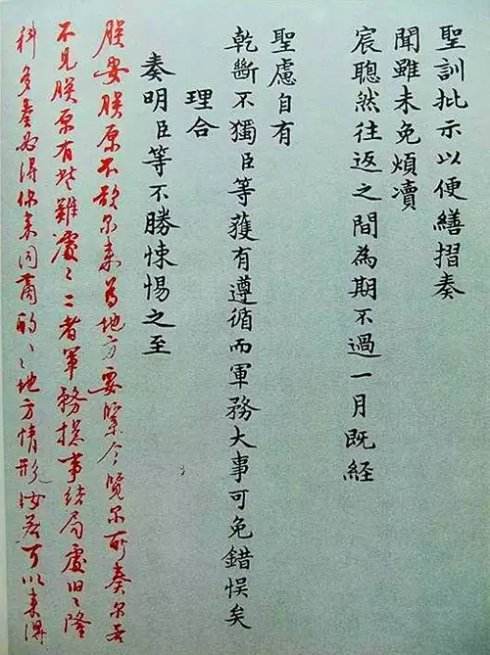 聖訓批示以便繕摺奏
聞雖未免煩瀆
宸聰然往返之間為期不過一月既經
聖慮自有
乾斷不獨臣等獲有遵循而軍務大事可免錯悞矣
理合
奏明臣等不勝悚惕之至
朕安朕原不欲尔来為地方要緊今覽尔所奏尔若
不見朕原有些難處〻〻者軍務摠事結局處旧〻隆
科多奏必得你来同商酌〻地方情形汝若可以来得